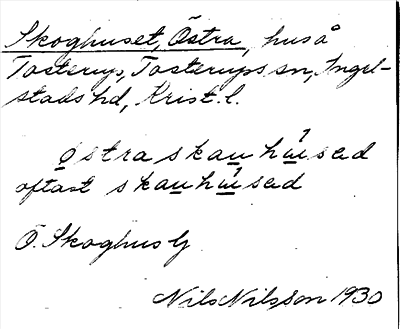 Skoghuset, Östra, hus å
Tosterup, Tosterups sn, Ingel-
stads hd, Krist. l.
östra skauhúsed
oftast skauhúsed
Ö. Skoghus G
Nils Nilsson 1930